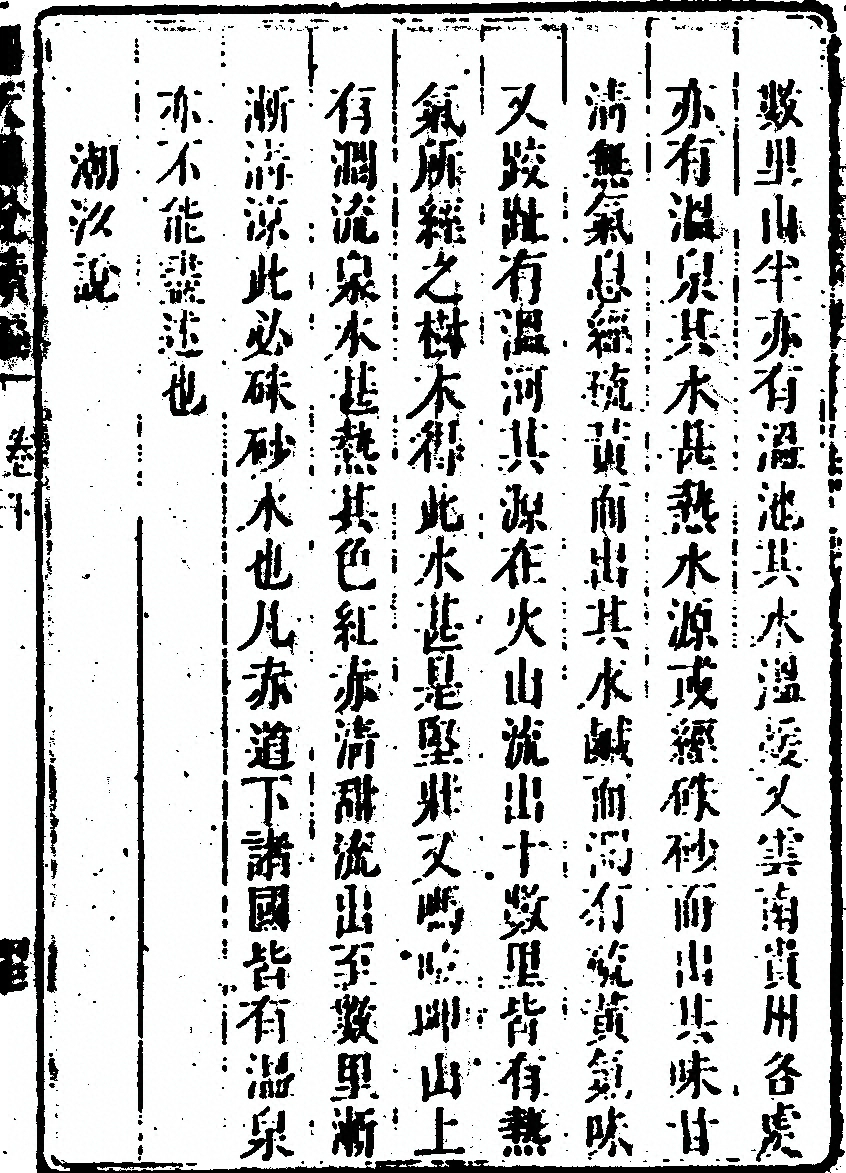 數里山半亦有溫池其水溫煖又雲南貴州各處
亦有溫泉其水甚熱水源或經硃砂而出其味甘
清無氣息經硫黃而出其水鹹而濁有硫黃氣味
又跤趾有溫河其源在火山流出十數里皆有熱
氣所經之樹木得此水甚是堅壯又嗎 呷山上
有澗流泉水甚熱其色紅赤清甜流出至數里漸
漸清涼此必硃砂水也凡赤道下諸國皆有溫泉
亦不能盡述也
潮汐說
卷下